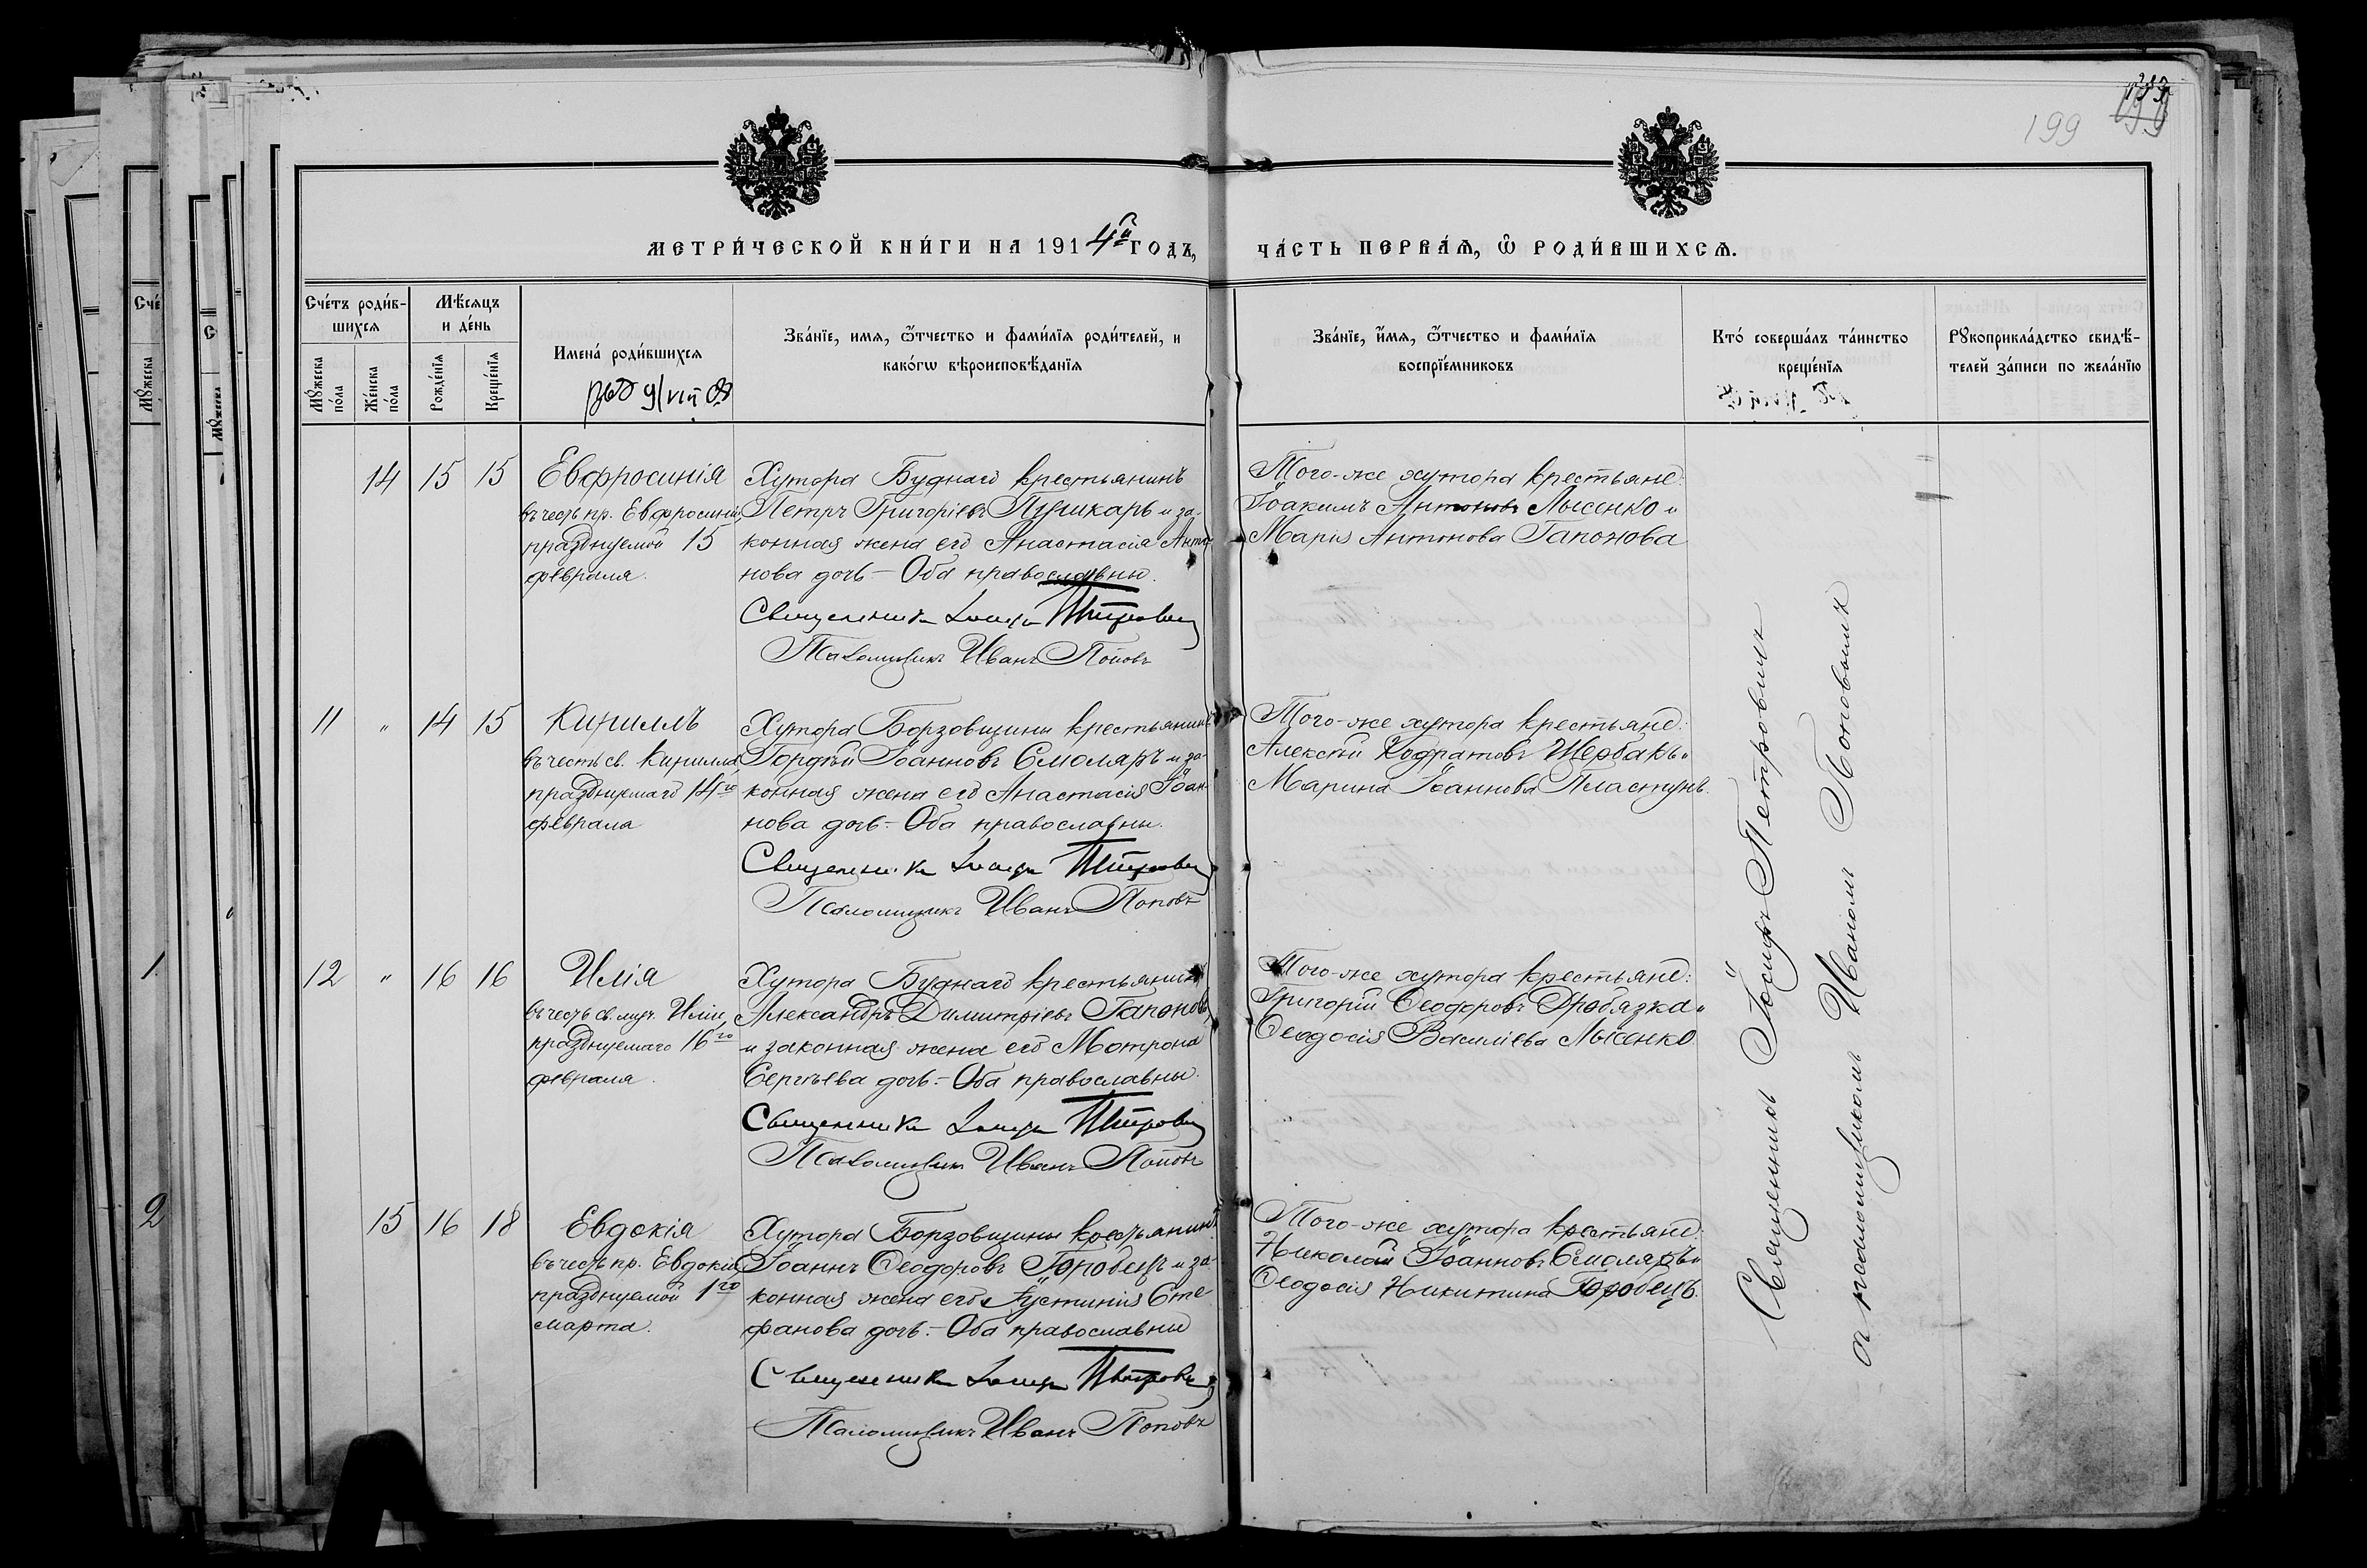 199
МЕТРИ́ЧЕСКОЙ КНИ́ГИ НА 1914й ГОДЪ,
ЧА́СТЬ ПЕРВА́Ѧ, Ѽ РОДИ́ВШИХСѦ.
Сче́тъ роди́в-
шихсѧ
Мꙋ́жеска
по́ла
Же́нска
по́ла
Мѣ́сѧцъ
и де́нь
Рожде́нїѧ
Креще́нїѧ
Имена̀ роди́вшихсѧ
Зва́нїе, имѧ, ѻ҆́тчество и фами́лїѧ роди́телей, и
како́гѡ вѣроисповѣ́данїѧ
Зва́нїе, и҆́мѧ, ѻ҆́тчество и фами́лїѧ
воспрїе́мниковъ
Кто́ соверша́лъ та́инство
креще́нїѧ
Рꙋкоприкла́дство свидѣ́-
телей за́писи по жела́нїю
14 15 15
Евфросинія
въ честь пр. Евфросиніи,
празднуемой 15
февраля.
Хутора Буднаго крестьянинъ
Петръ Григоріевъ Пушкарь и за-
конная жена его Анастасія Анто-
нова дочь – Оба православны.
Священникъ Іосифъ Петровичъ
Псаломщикъ Иванъ Поповъ
Того-же хутора крестьяне:
Іоакимъ Антоновъ Лысенко и
Марія Антонова Гапонова
11 " 14 15
Кириллъ
въ честь св. Кирилла
празднуемаго 14го
февраля
Хутора Борзовщины крестьянинъ
Гордѣй Іоанновъ Смоляръ и за-
конная жена его Анастасія Іоан-
нова дочь – Оба православны.
Священникъ Іосифъ Петровичъ
Псаломщикъ Иванъ Поповъ
Того-же хутора крестьяне:
Алексѣй Кодратовъ Щербакъ и
Марина Іоаннова Пластунъ.
12 " 16 16
Илія
въ честь св. муч. Иліи,
празднуемаго 16го
февраля.
Хутора Буднаго крестьянинъ
Александръ Димитріевъ Гапоновъ
и законная жена его Мотрона
Сергѣева дочь – Оба православны.
Священникъ Іосифъ Петровичъ
Псаломщикъ Иванъ Поповъ
Того-же хутора крестьяне:
Григорій Ѳеодоровъ Дробязка и
Ѳеодосія Васильева Лысенко
15 16 18
Евдокія
въ честь пр. Евдокіи
празднуемой 1го
марта.
Хутора Борзовщины крестьянинъ
Іоаннъ Ѳеодоровъ Горобецъ и за-
конная жена его Іустинія Сте-
фанова дочь – Оба православны
Священникъ Іосифъ Петровичъ
Псаломщикъ Иванъ Поповъ
Того-же хутора крестьяне:
Николай Іоанновъ Смоляръ и
Ѳеодосія Никитина Горобецъ.
Священникъ Іосифъ Петровичъ
съ псаломщикомъ Иваномъ Поповымъ